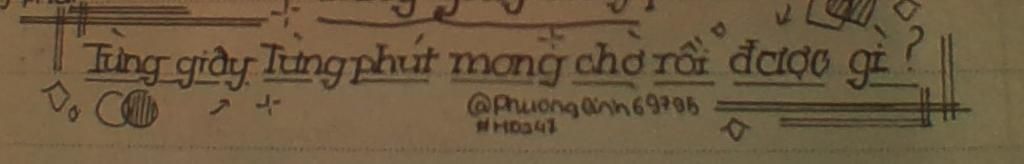 Từng giây Từng phút mong chờ rồi được gì ?
@phuonganh69795